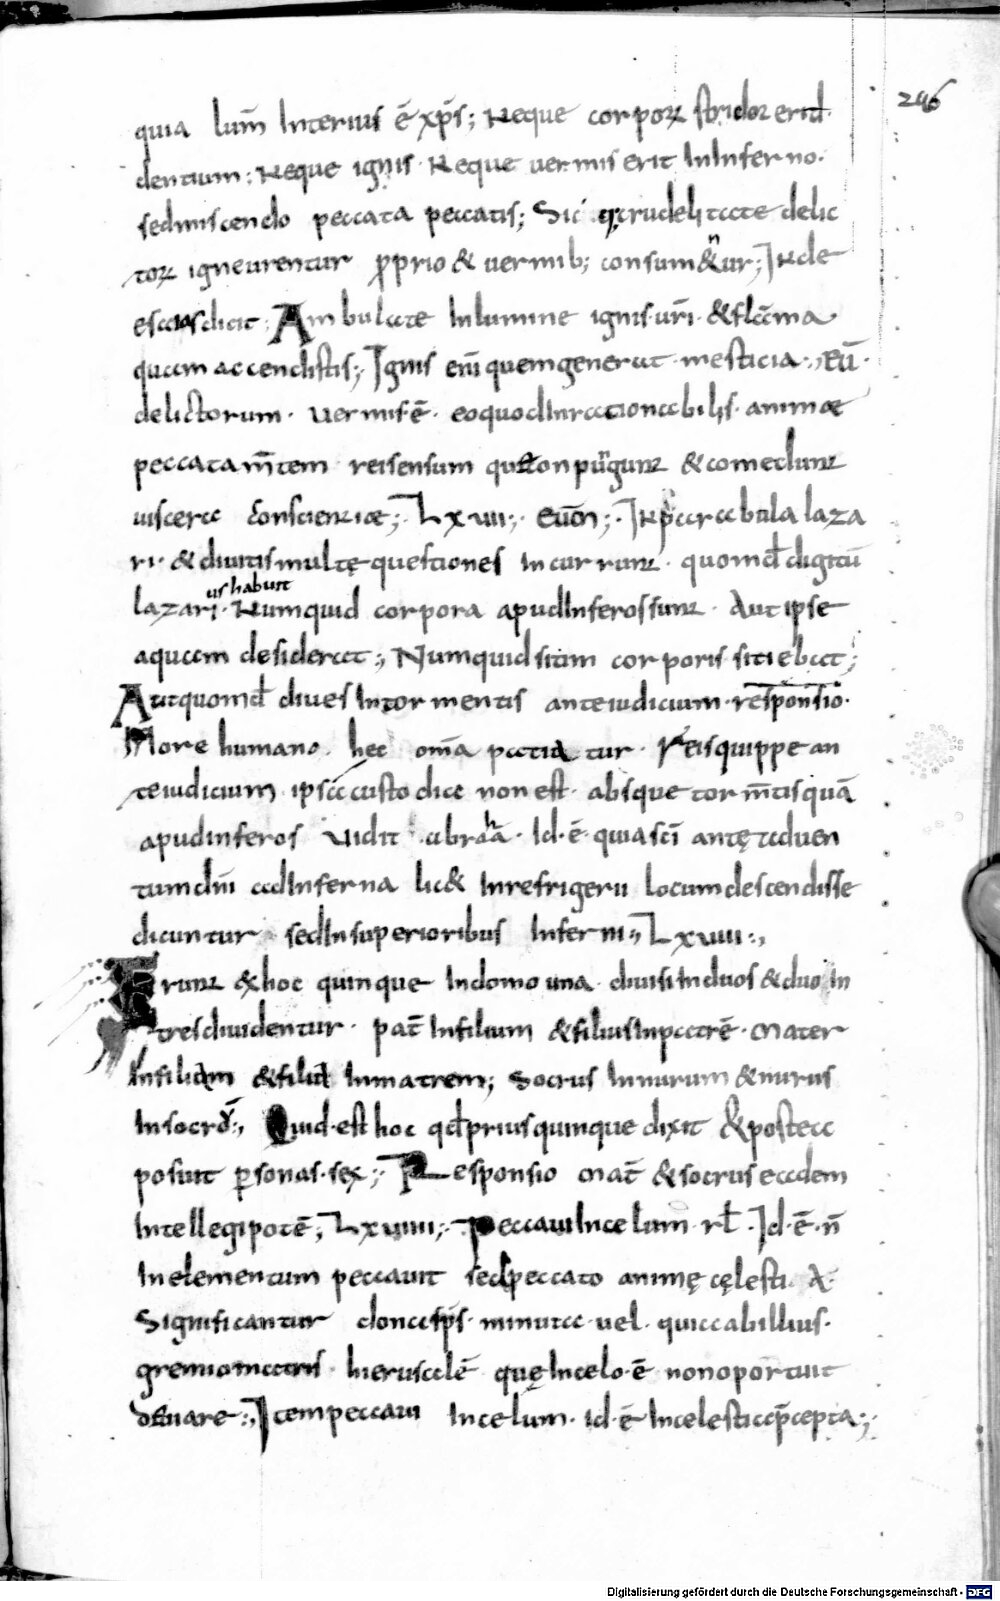 246
quia lum̄ Interius ē xp̄s; Neque corpoꝝ stridor erit
dentium; Neque ignis Neque uermis erit InInferno.
sedmiscendo peccata peccatis; Sic crudelitate delic
toꝝ igneurentur ꝓprio & uermib; consum&ur; Inde
esaiasdicit. Ambulate Inlumine ignis ur̄i. &flāma
quam accendistis; Ignis eni quemgenerat mesticia., cū
delictorum. uermisē. eoquodInrationabilis. animæ
peccatam̄tem reisensum conpūgunt &comedunt
uiscera conscientiæ; Lxuii;. Euōn;. Inparabula laza
ri. &diuitismultę questiones Incurrunt. quomd̄ digitū
us habuit
lazari. Numquid corpora apudInferossunt. Aut ipse
aquam desiderat; Numquidsitim corporis sitiebat;
Autquomd̄ diues Intormentis anteiudicium. responsio.
More humano hec om̄a patiatur. Reisquippe an
teiudicium ipsa custodia nonest. absque torm̄tisquā
apudinferos Vidit abrahā. Id. ē. quiasc̄i antę aduen
tumdn̄i adInferna lic& Inrefrigerii locumdescendisse
dicuntur sedInsuperioribus Inferni;, Lxuiii;,
Erunt &hoc quinque Indomo una. diuisi Induos &duo In
tresdiuidentur. pat̄ Infilium &filiusInpatrē. Mater
Infiliam &filia Inmatrem; Socrus Innurum &nurus
Insocrū;, Quid. est hoc qd̄priusquinque dixit &postea
posuit ꝑsonas. sex;; Responsio Mat̄ &socrus eadem
Intellegi potē; Lxuiiii;. PeccauiIncelum. rl̄. Id. ē. n̄
Inelementum peccauit sedpeccato animę cęlesti. A.
Significantur donasp̄s. minuta. uel. quia abillius.
gremiomatris. hierusalē quęIncelo. ē nonoportuit
deuiare;, Item peccaui Incelum. id. ē Incelestiap̄cepta;.
Digitalisierung gefördert durch die Deutsche Forschungsgemeinschaft - DFG